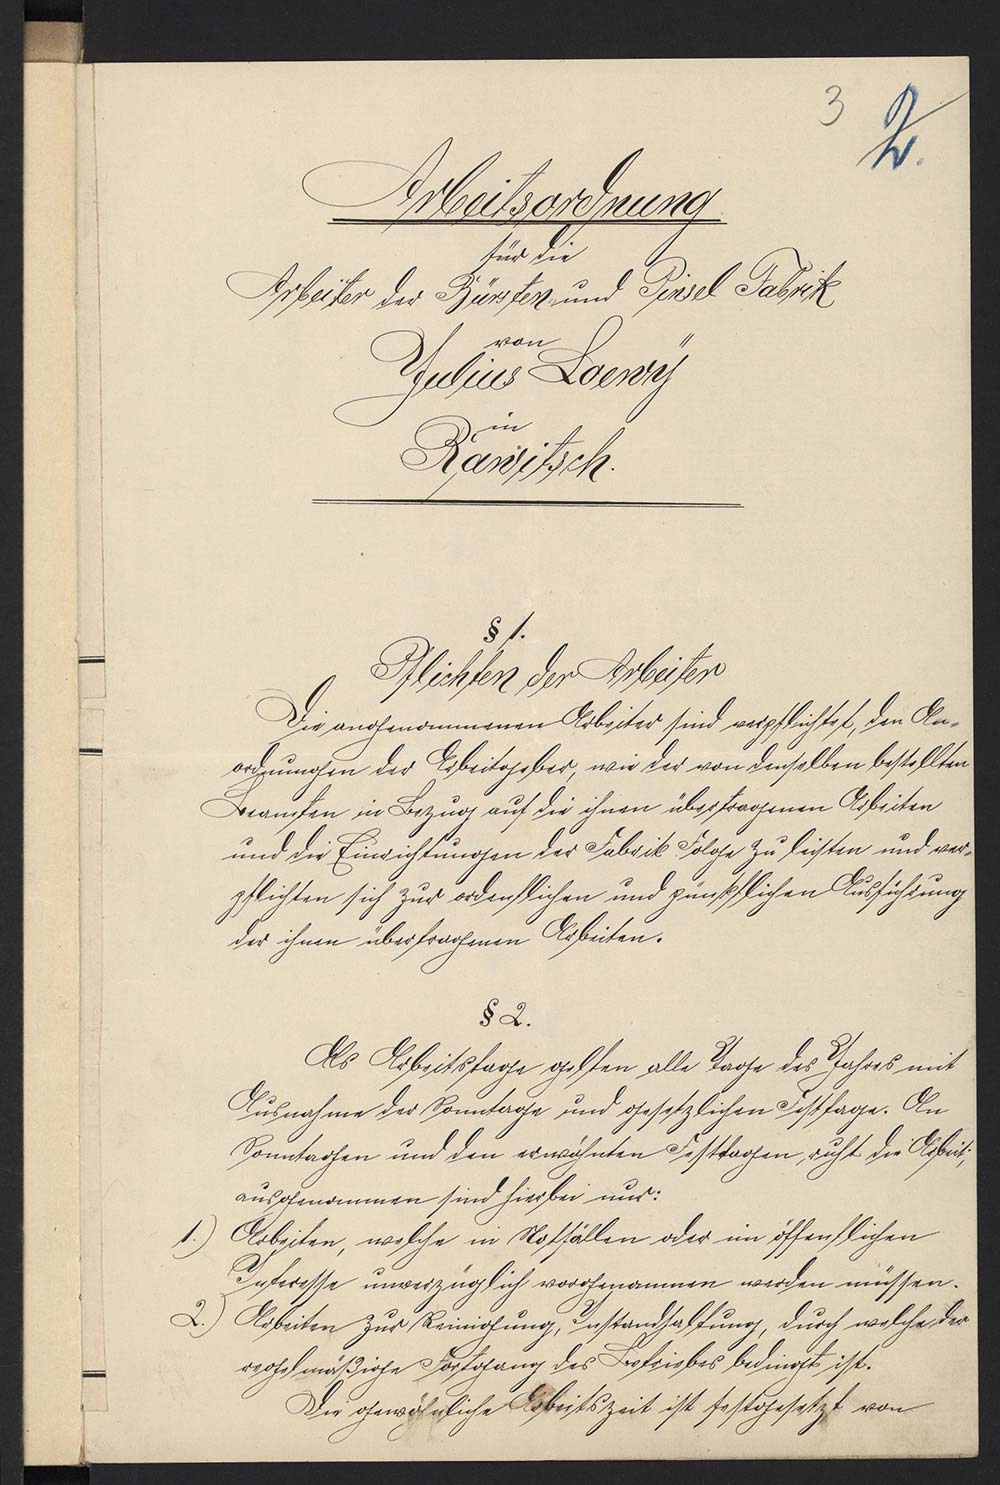 3 2.
Arbeitsordnung
für die
Arbeiter der Bürsten und Pinsel Fabrik
von
Julius Loewy
in
Rawitsch.
§ 1.
Pflichten der Arbeiter
Die angenommenen Arbeiter sind verpflichtet, den An-
ordnungen der Arbeitgeber, wie der von denselben bestellten
Beamten in Bezug auf die ihnen übertragenen Arbeiten
und die Einrichtungen der Fabrik Folge zu leisten und ver-
pflichten sich zur ordentlichen und pünktlichen Ausführung
der ihnen übertragenen Arbeiten.
§ 2.
Als Arbeitstage gelten alle Tage des Jahres mit
Ausnahme der Sonntage und gesetzlichen Festtage. An
Sonntagen und den erwähnten Festtagen, ruht die Arbeit;
ausgenommen sind hierbei nur:
1.) Arbeiten, welche in Notfällen oder im öffentlichen
Interesse unverzüglich vorgenommen werden müssen.
2.) Arbeiten zur Reinigung, Instandhaltung, durch welche der
regelmäßige Fortgang des Betriebes bedingt ist.
Die gewöhnliche Arbeitszeit ist festgesetzt von